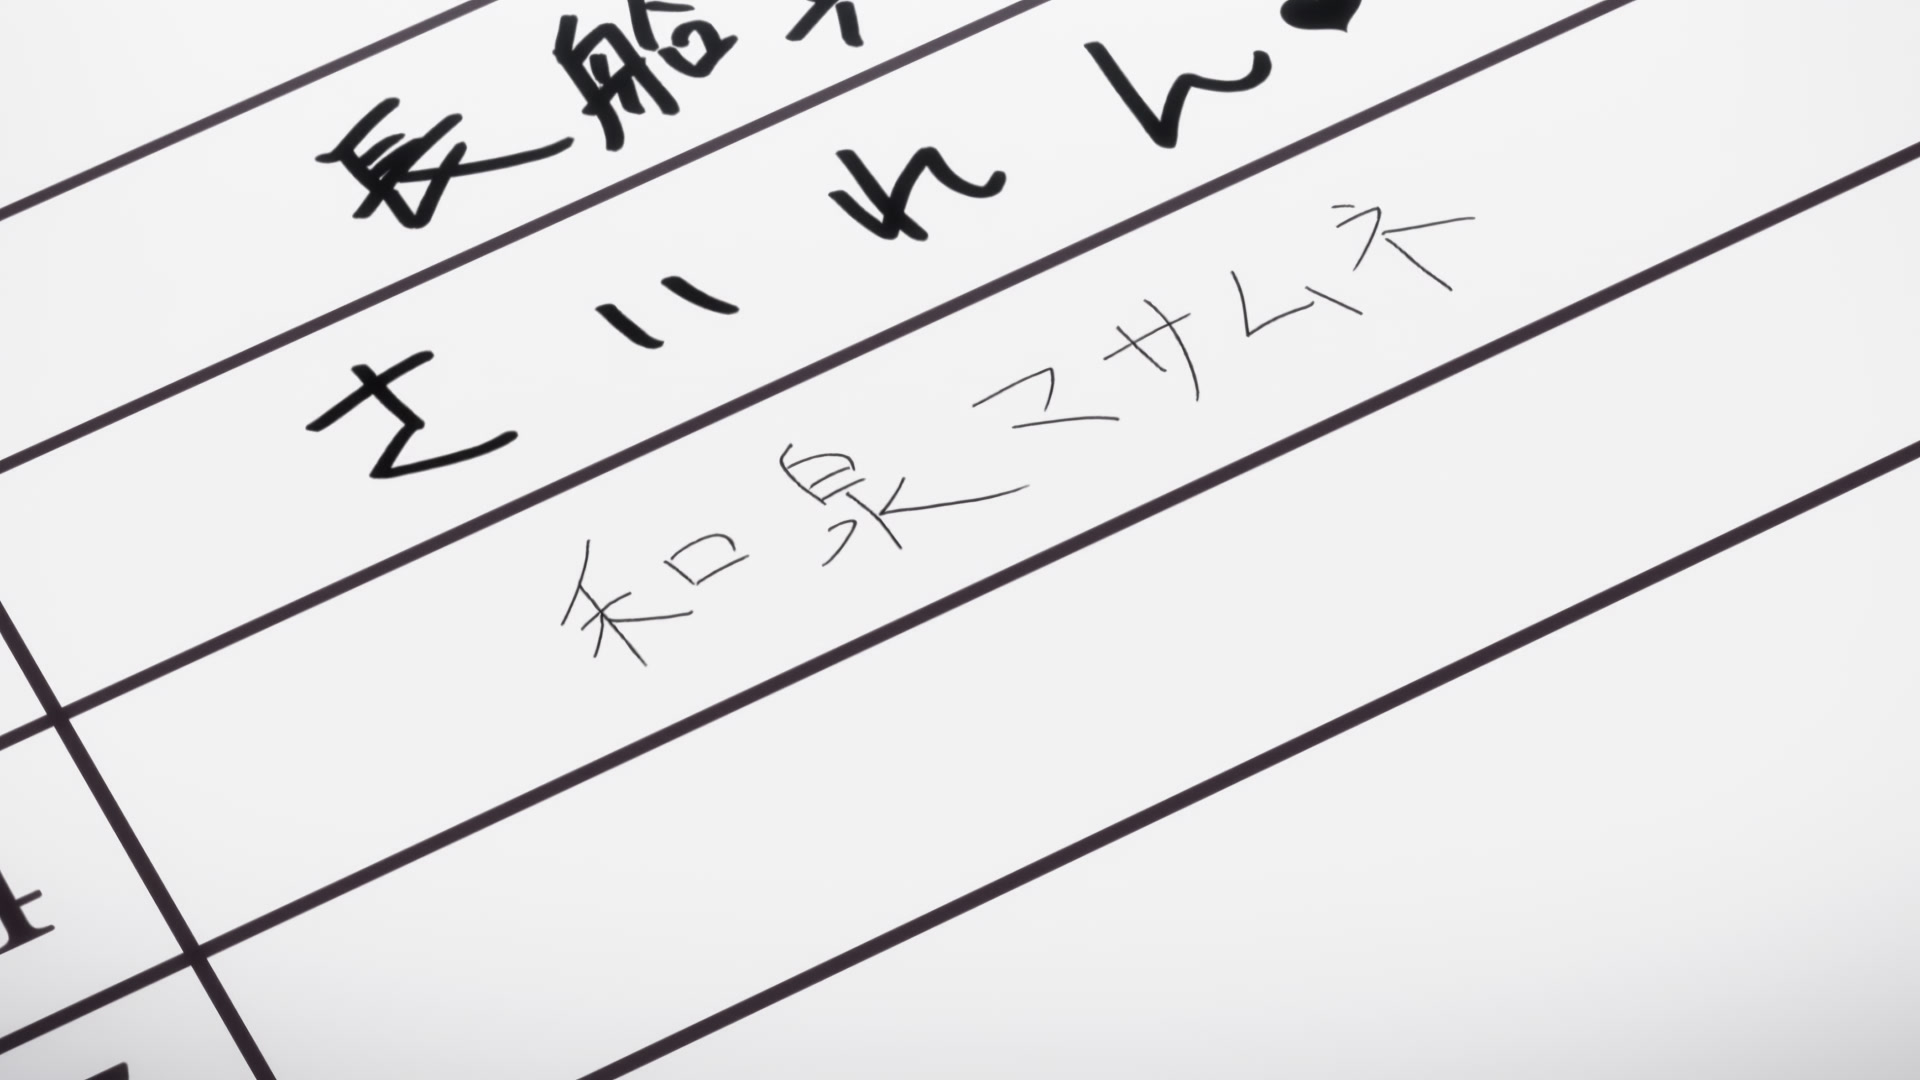 長船
さいれん
和泉マサムネ